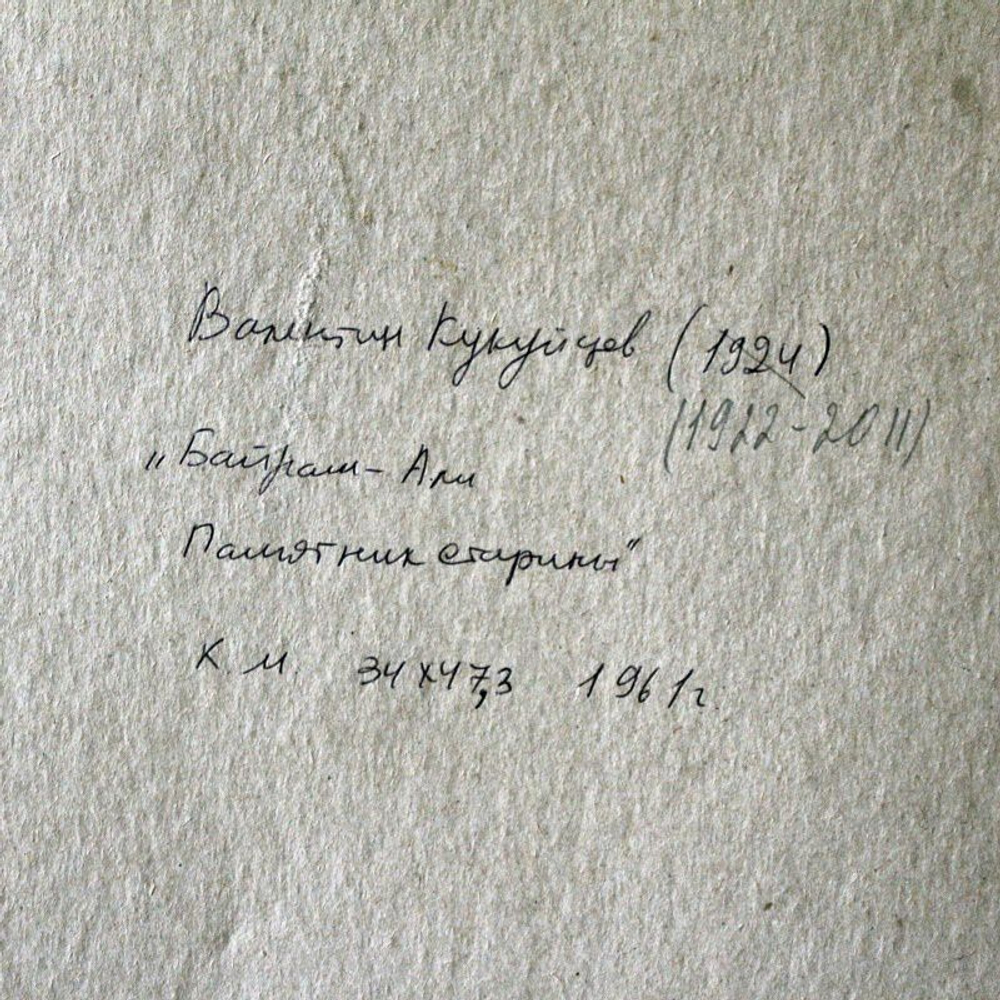 Валентин Кукуйцев (1924)
(1922-2011)
„Байрам-Али
Памятник старины"
К. М. 34х47,3 1961г.